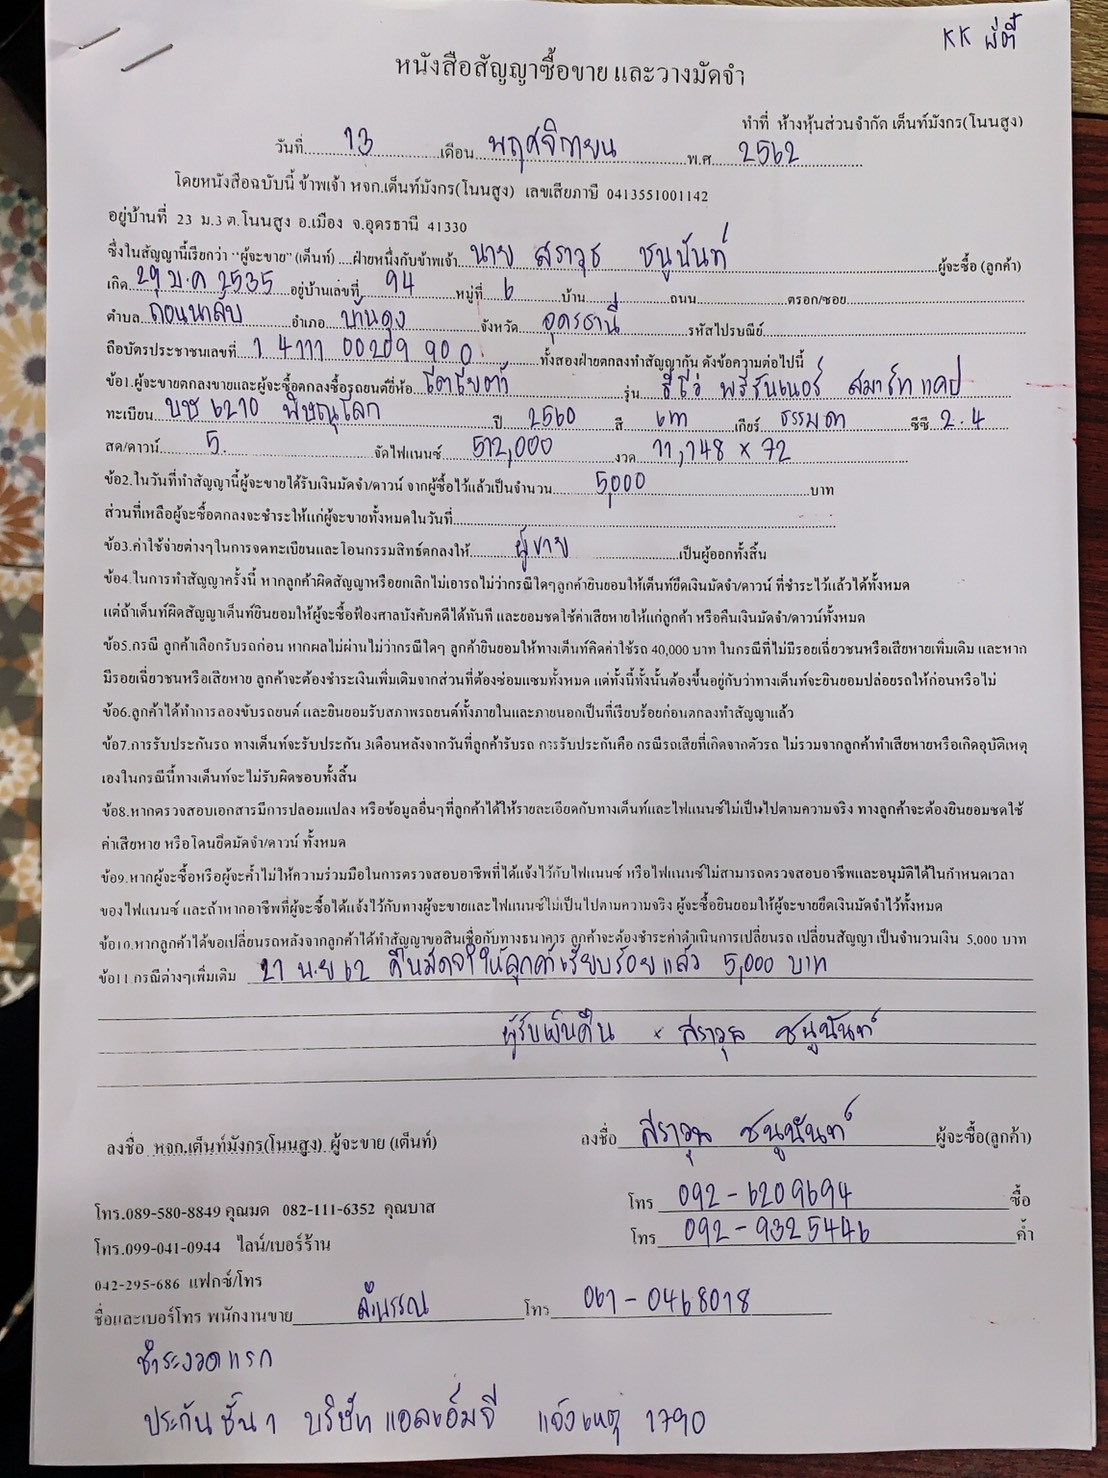 KK
หนังสือสัญญาซื้อขาย และวางมัดจำ
ทำที่ ห้างหุ้นส่วนจำกัด เต็นท์มังกร(โนนสูง)
วันที่ 13 เดือน พฤศจิกายน พ.ศ 2562
โดยหนังสือฉบับนี้ ข้าพเจ้า หจก.เต็นท์มังกร(โนนสูง) เลขเสียภาษี 0413551001142
อยู่บ้านที่ 23 ม.3 ต.โนนสูง อ.เมือง จ.อุดรธานี 41330
ซึ่งในสัญญานี้เรียกว่า "ผู้จะขาย" (เต็นท์) ....ฝ่ายหนึ่งกับข้าพเจ้า นาย สราวุธ ชนูนันท์ ผู้จะซื้อ (ลูกค้า)
เกิด 29 ม.ค 2535 อยู่บ้านเลขที่ 94 หมู่ที่ 6 บ้าน ถนน ตรอก/ซอย
ตำบล ถอนนาลับ อำเภอ บ้านดุง จังหวัด อุดรธานี รหัสไปรษณีย์
ถือบัตรประชาชนเลขที่ 1 4111 00209 90 0 ทั้งสองฝ่ายตกลงทำสัญญากัน ดังข้อความต่อไปนี้
ข้อ1.ผู้จะขายตกลงขายและผู้จะซื้อตกลงซื้อรถยนต์ยี่ห้อ โตโยต้า รุ่น รีโว่ พรีรันเนอร์ สมาร์ท แคป
ทะเบียน บษ 6210 พิษณุโลก ปี 2560 สี เทา เกียร์ ธรรมดา ซีซี 2.4
สด/ดาวน์ 5. จัดไฟแนนซ์ 512,000 งวด 11,148 x 72
ข้อ2.ในวันที่ทำสัญญานี้ผู้จะขายได้รับเงินมัดจำ/ดาวน์ จากผู้ซื้อไว้แล้วเป็นจำนวน 5,000 บาท
ส่วนที่เหลือผู้จะซื้อตกลงจะชำระให้แก่ผู้จะขายทั้งหมดในวันที่
ข้อ3.ค่าใช้จ่ายต่างๆในการจดทะเบียนและโอนกรรมสิทธ์ตกลงให้ ผู้ขาย เป็นผู้ออกทั้งสิ้น
ข้อ4.ในการทำสัญญาครั้งนี้ หากลูกค้าผิดสัญญาหรือยกเลิกไม่เอารถไม่ว่ากรณีใดๆลูกค้ายินยอมให้เต็นท์ยึดเงินมัดจำ/ดาวน์ ที่ชำระไว้แล้วได้ทั้งหมด
แต่ถ้าเต็นท์ผิดสัญญาเต็นท์ยินยอมให้ผู้จะซื้อฟ้องศาลบังคับคดีได้ทันที และยอมชดใช้ค่าเสียหายให้แก่ลูกค้า หรือคืนเงินมัดจำ/ดาวน์ทั้งหมด
ข้อ5.กรณี ลูกค้าเลือกรับรถก่อน หากผลไม่ผ่านไม่ว่ากรณีใดๆ ลูกค้ายินยอมให้ทางเต็นท์คิดค่าใช้รถ 40,000 บาท ในกรณีที่ไม่มีรอยเฉี่ยวชนหรือเสียหายเพิ่มเติม และหาก
มีรอยเฉี่ยวชนหรือเสียหาย ลูกค้าจะต้องชำระเงินเพิ่มเติมจากส่วนที่ต้องซ่อมแซมทั้งหมด แต่ทั้งนี้ทั้งนั้นต้องขึ้นอยู่กับว่าทางเต็นท์จะยินยอมปล่อยรถให้ก่อนหรือไม่
ข้อ6.ลูกค้าได้ทำการลองขับรถยนต์ และยินยอมรับสภาพรถยนต์ทั้งภายในและภายนอกเป็นที่เรียบร้อยก่อนตกลงทำสัญญาแล้ว
ข้อ7.การรับประกันรถ ทางเต็นท์จะรับประกัน 3เดือนหลังจากวันที่ลูกค้ารับรถ การรับประกันคือ กรณีรถเสียที่เกิดจากตัวรถ ไม่รวมจากลูกค้าทำเสียหายหรือเกิดอุบัติเหตุ
เองในกรณีนี้ทางเต็นท์จะไม่รับผิดชอบทั้งสิ้น
ข้อ8.หากตรวจสอบเอกสารมีการปลอมแปลง หรือข้อมูลอื่นๆที่ลูกค้าได้ให้รายละเอียดกับทางเต็นท์และไฟแนนซ์ไม่เป็นไปตามความจริง ทางลูกค้าจะต้องยินยอมชดใช้
ค่าเสียหาย หรือโดนยึดมัดจำ/ดาวน์ ทั้งหมด
ข้อ9.หากผู้จะซื้อหรือผู้จะค้ำไม่ให้ความร่วมมือในการตรวจสอบอาชีพที่ได้แจ้งไว้กับไฟแนนซ์ หรือไฟแนนซ์ไม่สามารถตรวจสอบอาชีพและอนุมัติได้ในกำหนดเวลา
ของไฟแนนซ์ และถ้าหากอาชีพที่ผู้จะซื้อได้แจ้งไว้กับทางผู้จะขายและไฟแนนซ์ไม่เป็นไปตามความจริง ผู้จะซื้อยินยอมให้ผู้จะขายยึดเงินมัดจำไว้ทั้งหมด
ข้อ10.หากลูกค้าได้ขอเปลี่ยนรถหลังจากลูกค้าได้ทำสัญญาขอสินเชื่อกับทางธนาคาร ลูกค้าจะต้องชำระค่าดำเนินการเปลี่ยนรถ เปลี่ยนสัญญา เป็นจำนวนเงิน 5,000 บาท
ข้อ11 กรณีต่างๆเพิ่มเติม 21 พ.ย 62 คืนมัดจำให้ลูกค้าเรียบร้อยแล้ว 5,000 บาท
ผู้รับเงินคืน x สราวุธ ชนูนันท์
ลงชื่อ หจก.เต็นท์มังกร(โนนสูง) ผู้จะขาย (เต็นท์) ลงชื่อ สราวุธ ชนูนันท์ ผู้จะซื้อ(ลูกค้า)
โทร.089-580-8849 คุณมด 082-111-6352 คุณบาส โทร 092-6209694 ซื้อ
โทร.099-041-0944 ไลน์/เบอร์ร้าน โทร 092-9325446 ค้ำ
042-295-686 แฟกซ์/โทร
ชื่อและเบอร์โทร พนักงานขาย ลำพรรณ โทร 061-0468018
ชำระงวดแรก
ประกัน ชั้น 1 บริษัท แอลเอ็มจี แจ้งเหตุ 1790